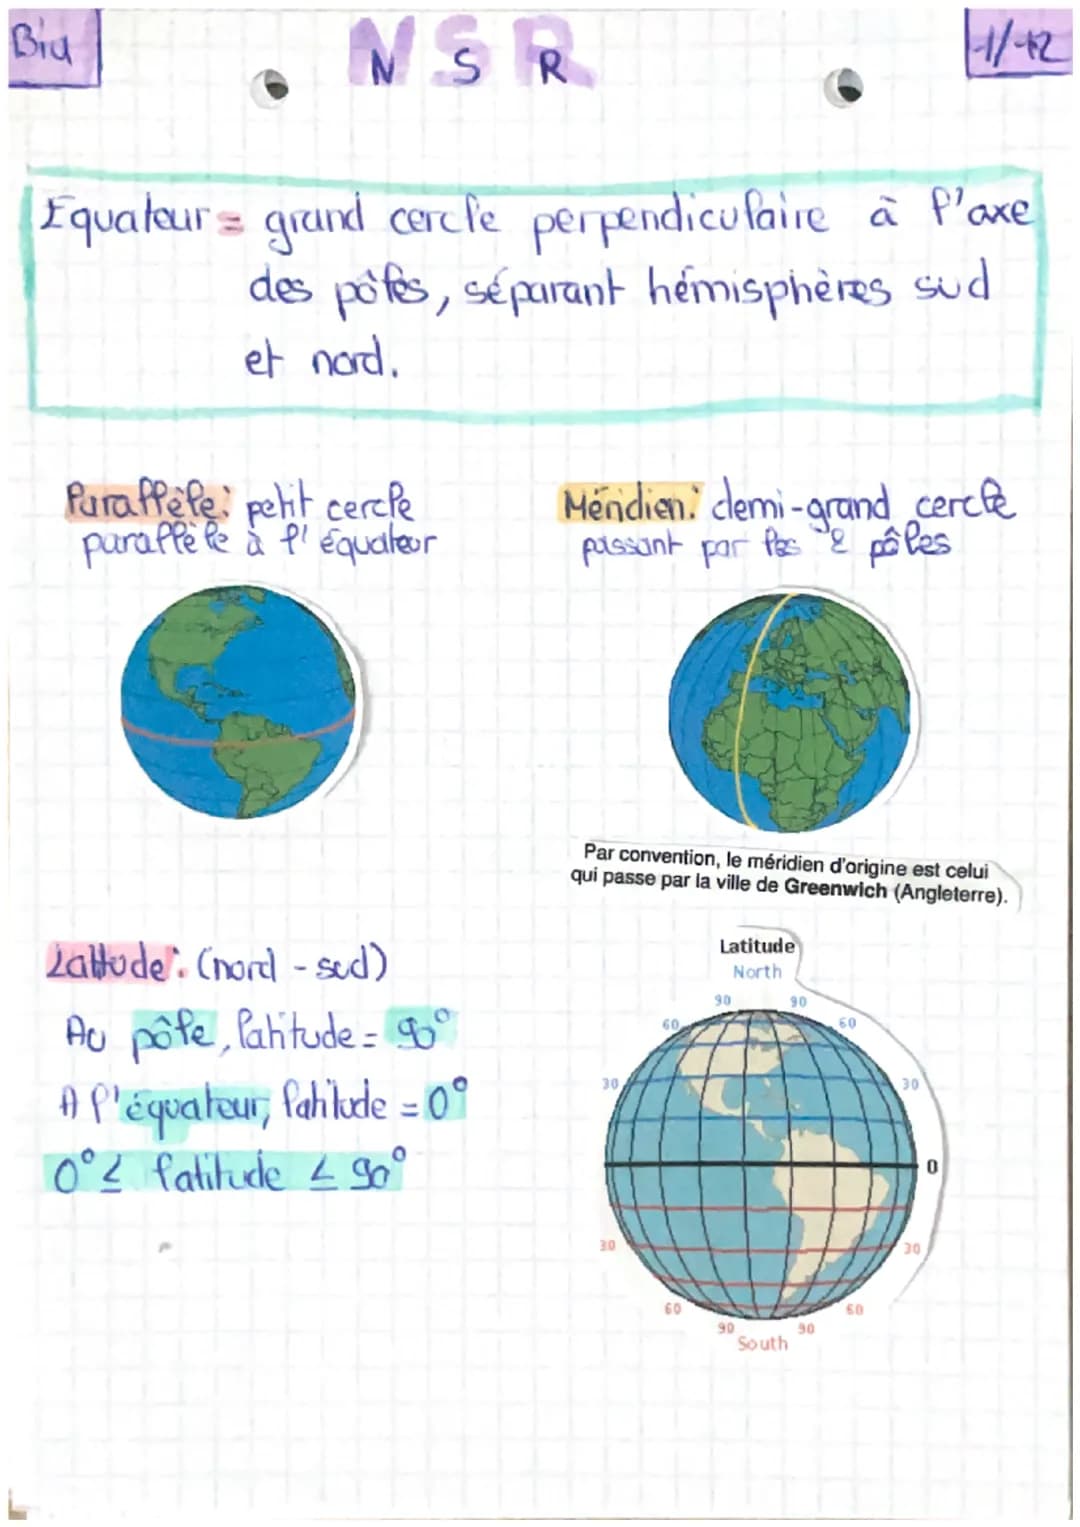 Biu
N S R
-1/-12
Equateur = grand cercle perpendiculaire à l'axe
des pôles, séparant hémisphères sud
et nord.
Parallèle: petit cercle
parallèle à l'équateur
Méridien: demi-grand cercle
passant par les 2 pôles
Par convention, le méridien d'origine est celui
qui passe par la ville de Greenwich (Angleterre).
Latitude: (nord - sud)
Au pôle, latitude = 90°
A l'équateur, latitude = 0°
0° ≤ latitude ≤ 90°
Latitude
North
90 90
60 60
30 30
0
30 30
60 60
90 90
South